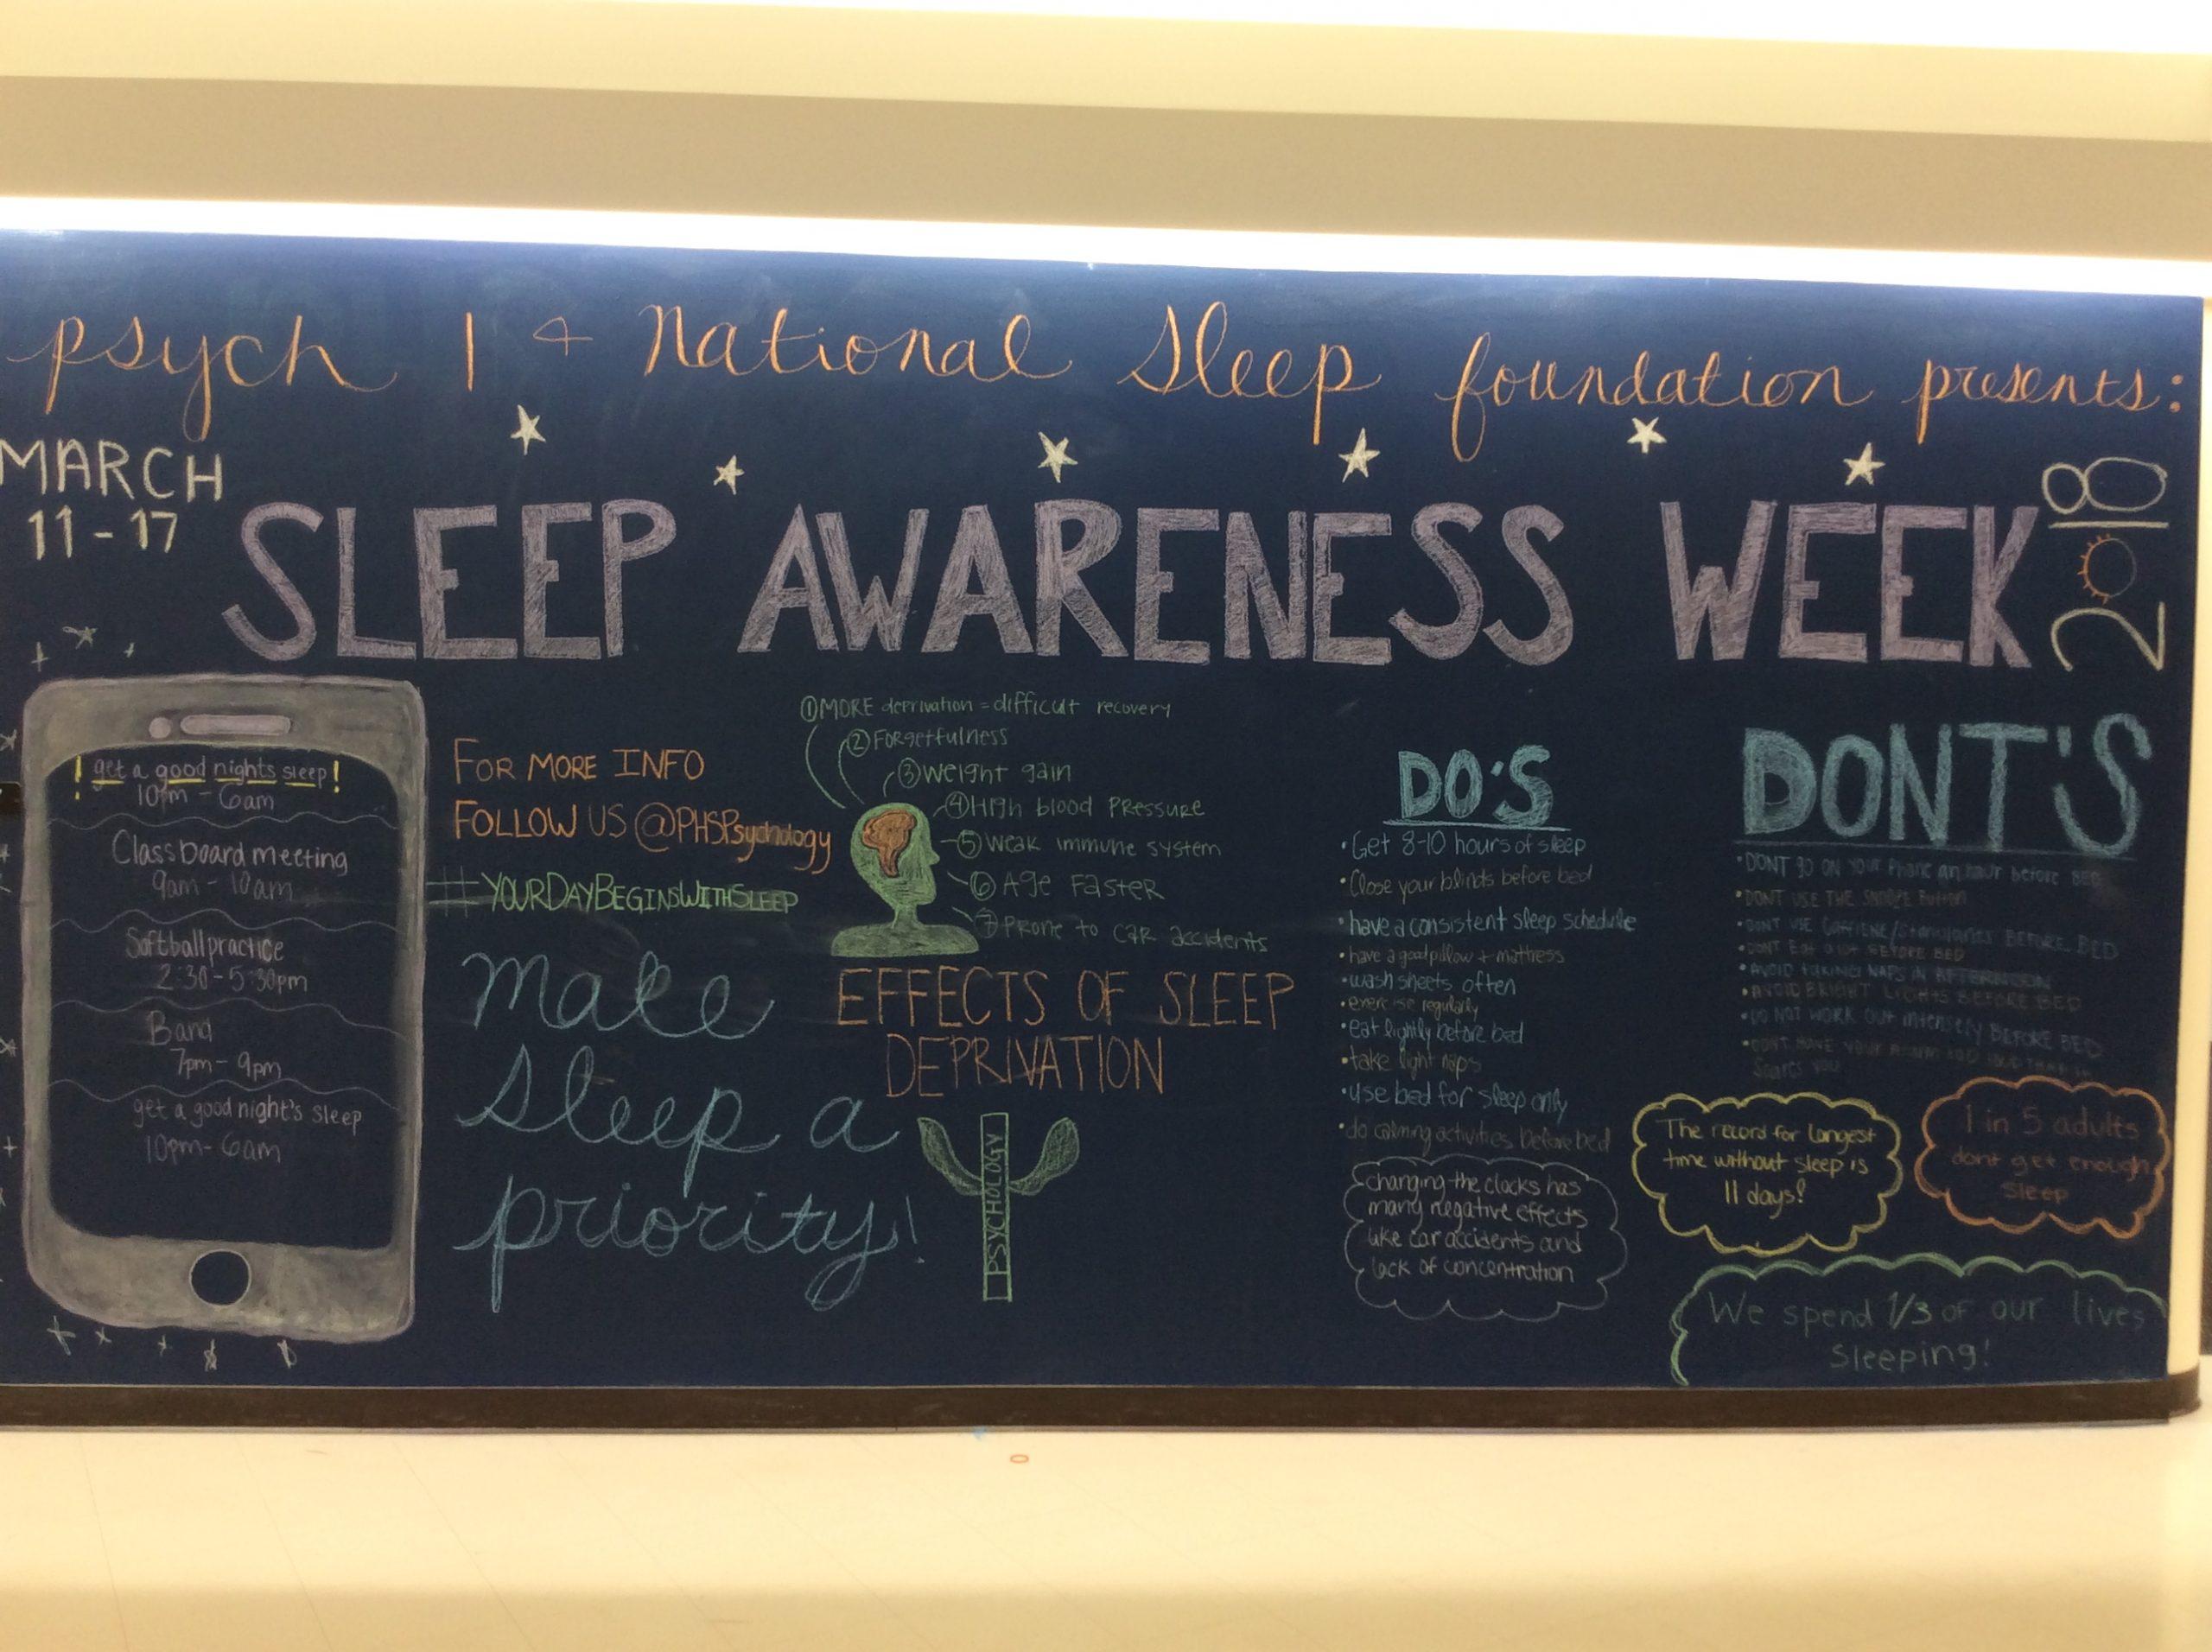 psych 1 & National Sleep foundation presents:
MARCH
11-17
SLEEP AWARENESS WEEK
2018
! get a good nights sleep!
10pm - 6am
Classboard meeting
9am - 10am
Softball practice
2:30-5:30pm
Band
7pm-9pm
get a good night's sleep
10pm-6am
FOR MORE INFO
FOLLOW US @PHSPsychology
#YOURDAYBEGINSWITHSLEEP
Make
Sleep a
priority!
① MORE deprivation = difficult recovery
② Forgetfulness
③ Weight gain
④ High blood Pressure
⑤ Weak immune system
⑥ Age Faster
⑦ Prone to car accidents
EFFECTS OF SLEEP
DEPRIVATION
PSYCHOLOGY
DO'S
• Get 8-10 hours of sleep
• Close your blinds before bed
• have a consistent sleep schedule
• have a good pillow + mattress
• wash sheets often
• exercise regularly
• eat lightly before bed
• take light naps
• use bed for sleep only
• do calming activities before bed
changing the clocks has
many negative effects
like car accidents and
lack of concentration
DONT'S
• DONT go ON YOUR Phone an hour before BED
• DONT USE THE SNOOZE Button
• DONT USE CAFFIENE/Stimulants BEFORE BED
• DONT Eat a lot BEFORE BED
• AVOID TAKING NAPS IN AFTERNOON
• AVOID BRIGHT LIGHTS BEFORE BED
• DO NOT WORK OUT intensely BEFORE BED
• DONT MAKE YOUR ALARM TOO LOUD THAT it
Scares you
The record for longest
time without sleep is
11 days!
1 in 5 adults
dont get enough
sleep
We spend 1/3 of our lives
Sleeping!